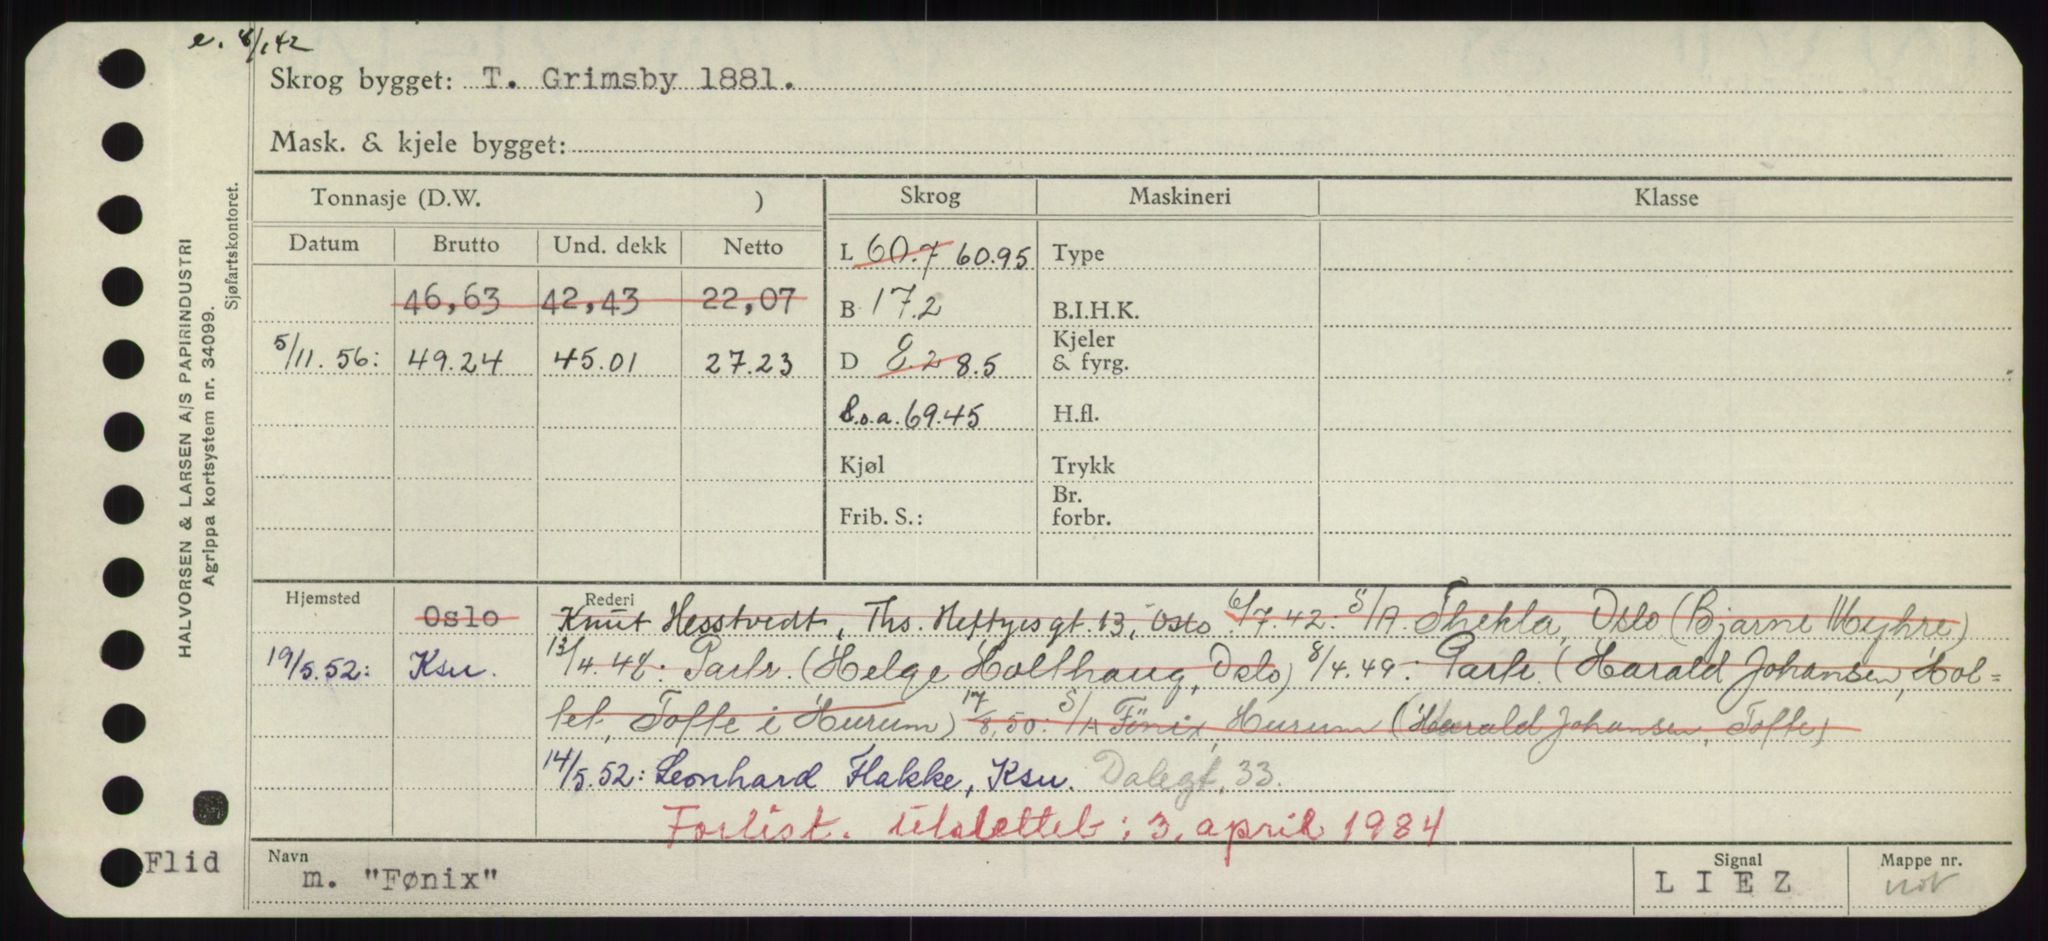 e. 8/1 42
Skrog bygget: T. Grimsby 1881.
Mask. & kjele bygget:
Tonnasje (D.W. ) Skrog Maskineri Klasse
Datum Brutto Und. dekk Netto
L 60.7 60.95 Type
46,63 42,43 22,07 B 17.2 B.I.H.K.
5/11.56: 49.24 45.01 27.23 D 8.2 8.5 Kjeler & fyrg.
L.o.a. 69.45 H.fl.
Kjøl Trykk
Frib. S.: Br. forbr.
Hjemsted Oslo Rederi Knut Hesstvedt, Ths. Heftyesgt. 13, Oslo 6/7.42: S/A Thekla, Oslo (Bjarne Myhre)
19/5.52: Ksu. 13/4.48: Partr. (Helge Holthaug, Oslo) 8/4.49: Partr. (Harald Johansen, Hol=
tet, Tofte i Hurum) 17/8.50: S/A Fönix, Hurum (Harald Johansen, Tofte)
14/5.52: Leonhard Flakke, Ksu. Dalegt. 33.
Forlist. utslettet: 3. april 1984
Flid Navn m. "Fønix" Signal LIEZ Mappe nr.
HALVORSEN & LARSEN A/S PAPIRINDUSTRI
Agrippa kortsystem nr. 34099.
Sjøfartskontoret.